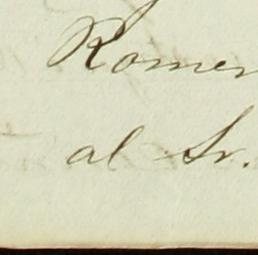 Romer
al Sr.